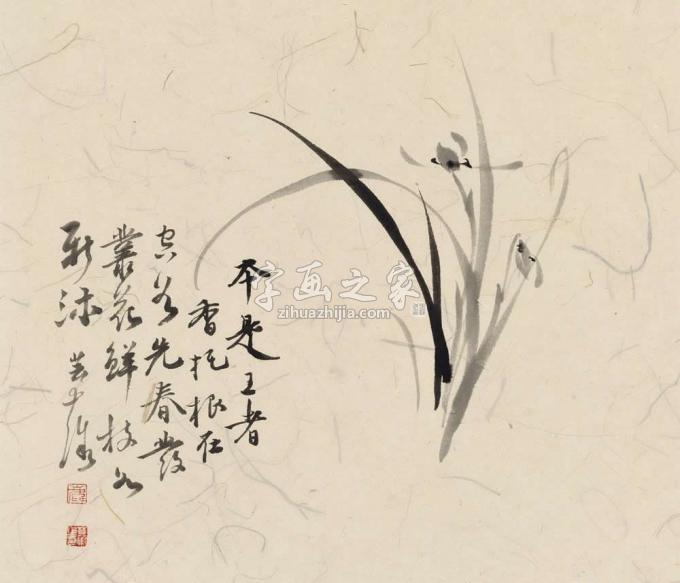 本是王者
香托根在
空谷先春發
叢花鮮枝如
新沐
字画之家
zihuazhijia.com